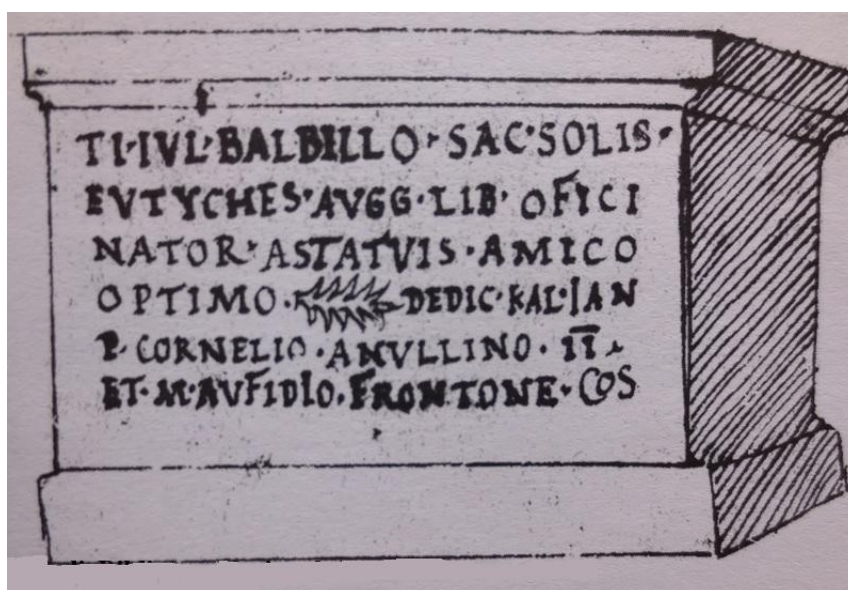 TI·IVL·BALBILLO·SAC·SOLIS·
EVTYCHES·AVGG·LIB·OFICI
NATOR·ASTATVIS·AMICO
OPTIMO·DEDIC·KAL·IAN
P·CORNELIO·ANVLLINO·II·
ET·M·AVFIDIO·FRONTONE·COS